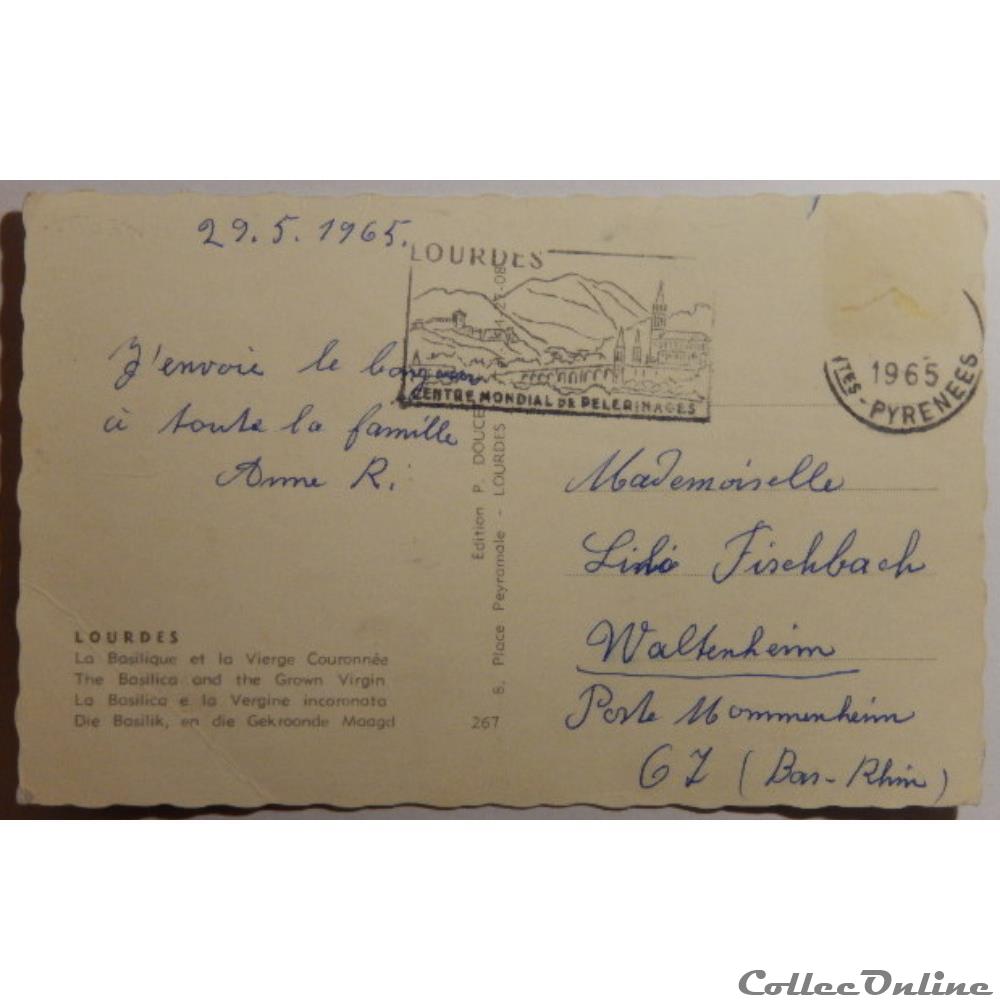 29.5.1965.
LOURDES
CENTRE MONDIAL DE PELERINAGES
1965
TES-PYRENEES
J'envoie le bonjour
à toute la famille
Anne R.
Mademoiselle
Fischbach
Waltenheim
Poste Mommenheim
67 (Bas-Rhin)
Edition P. DOUCE
8, Place Peyramale - LOURDES
LOURDES
La Basilique et la Vierge Couronnée
The Basilica and the Grown Virgin
La Basilica e la Vergine incoronata
Die Basilik, en die Gekroonde Maagd
267
CollecOnline